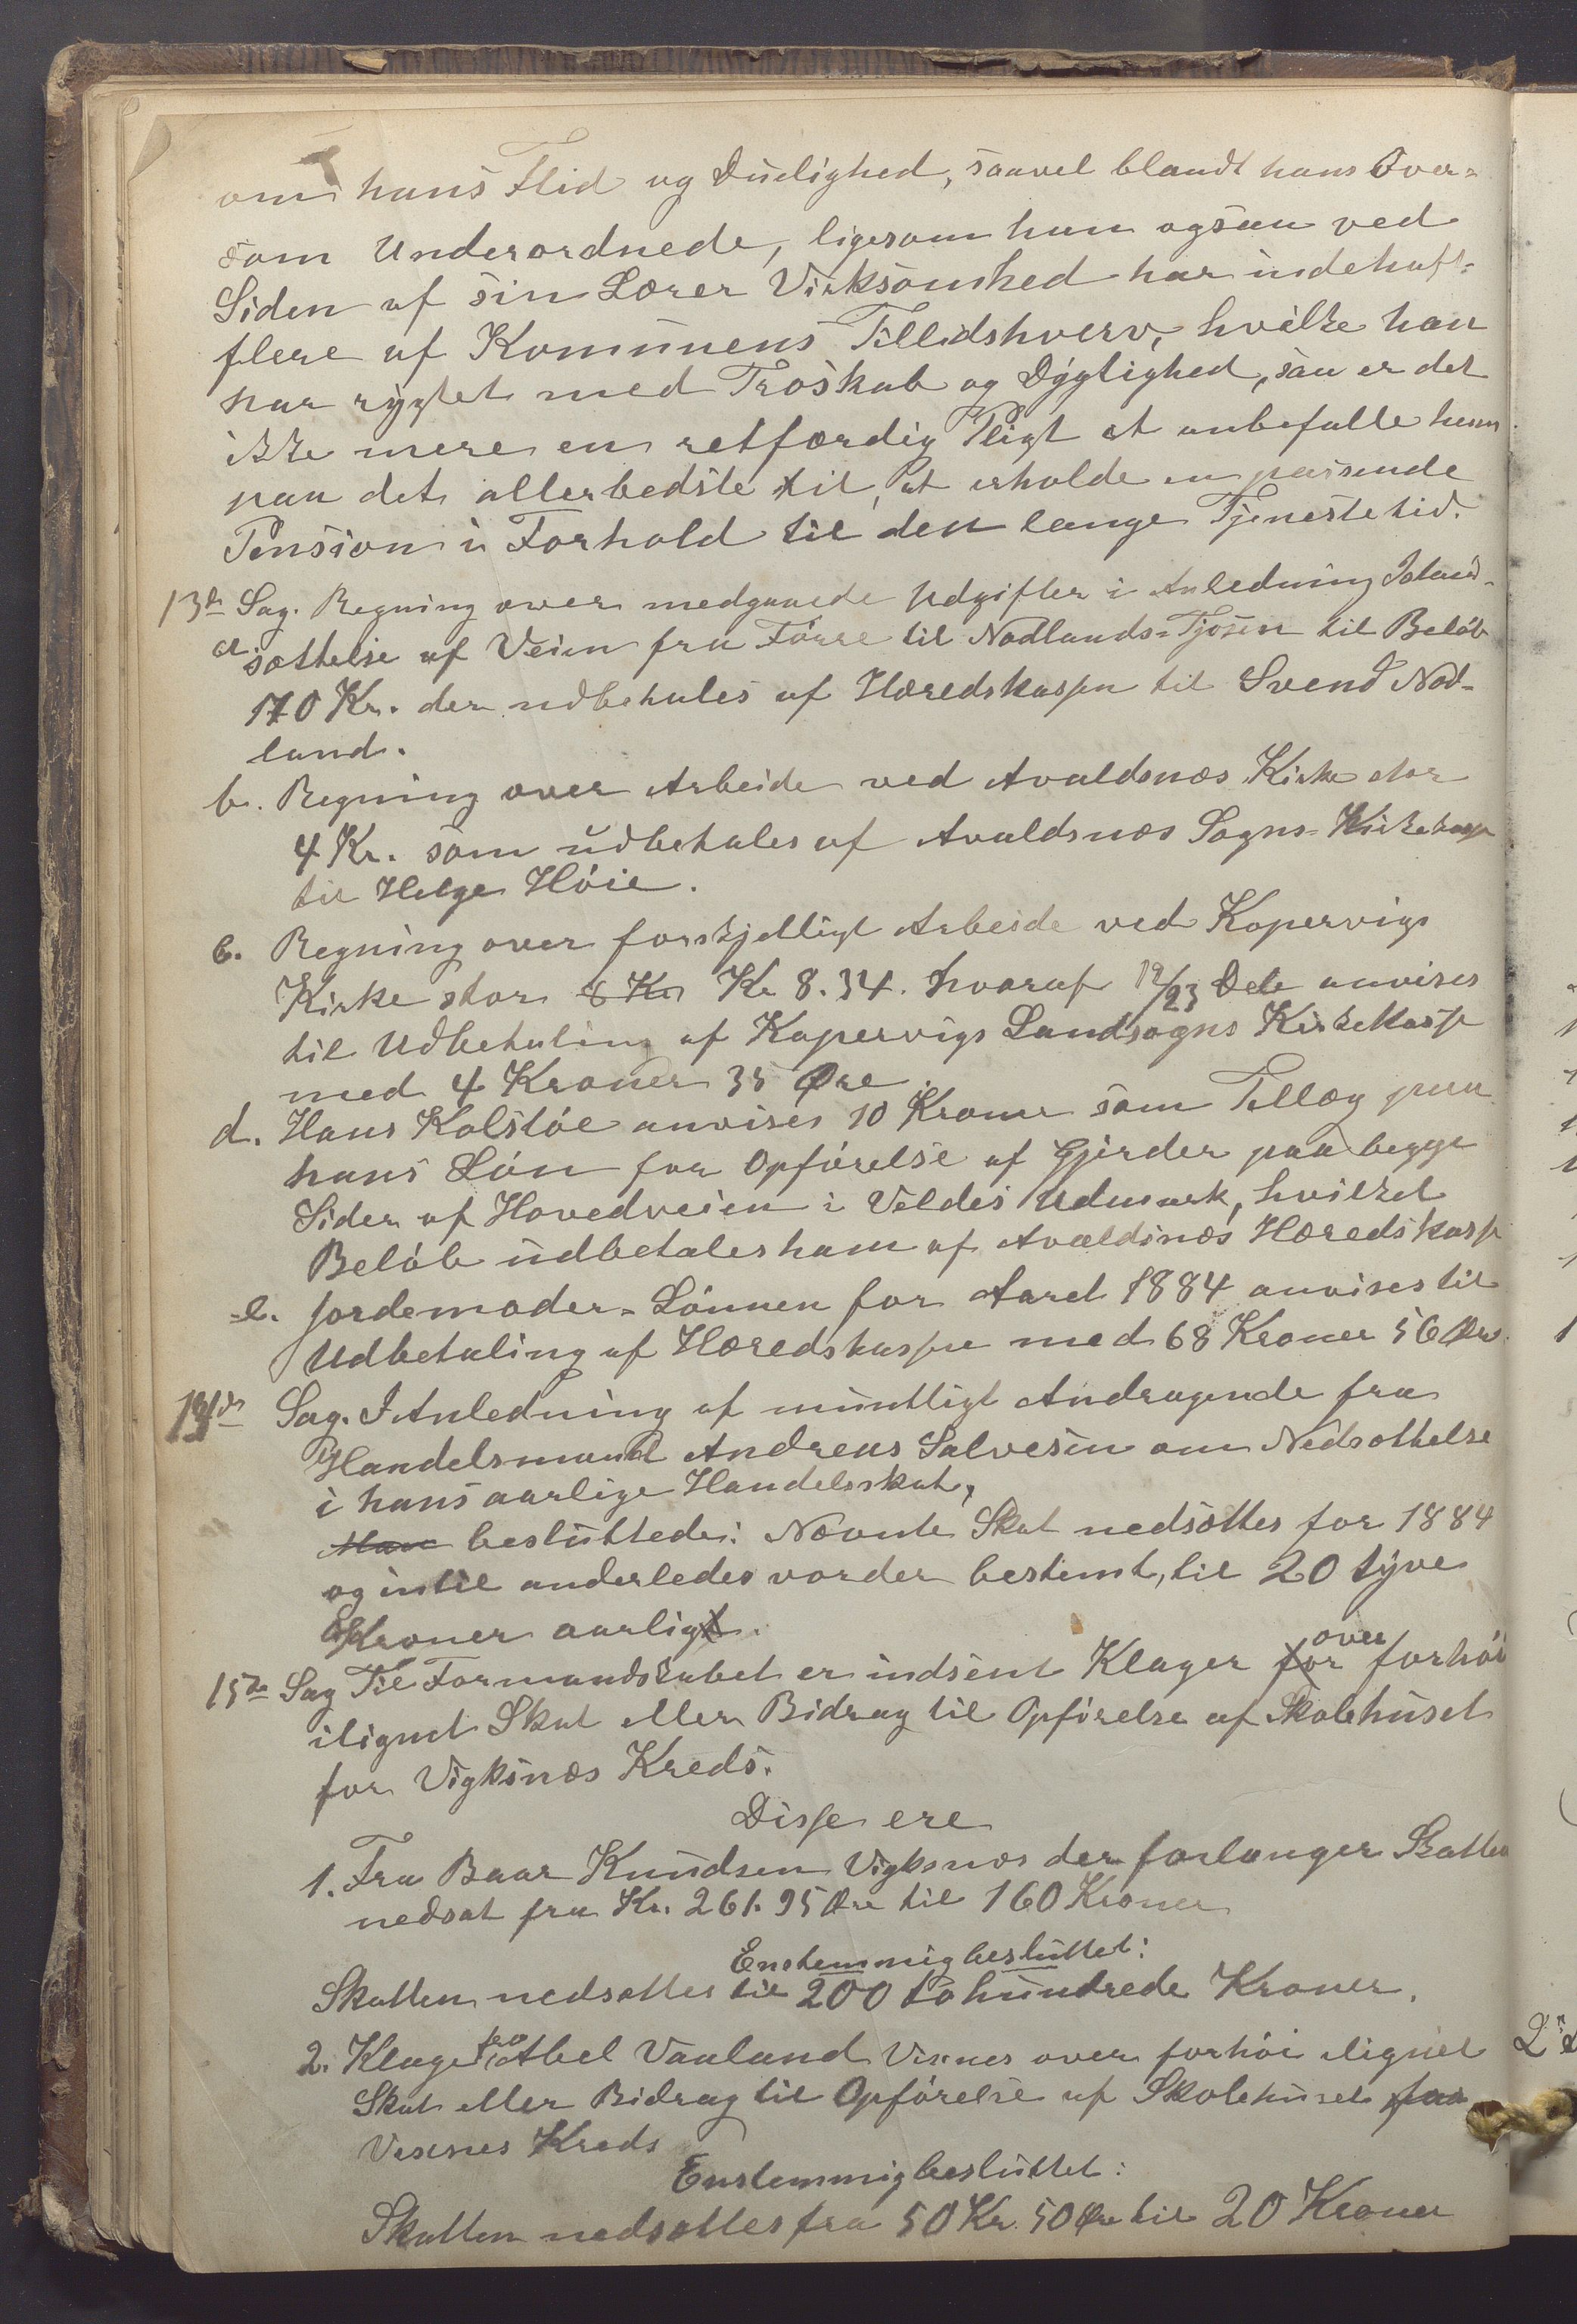 om hans Flid og Duelighed, saavel blandt hans Over-
som Underordnede, ligesom han ogsaa ved
Siden af sin Lærer Virksomhed har indehaft
flere af Komunens Tillidshverv, hvilke han
har rygtet med Troskab og Dygtighed, saa er det
ikke mere en retfærdig Pligt at anbefalle ham
paa det allerbedste til, at erholde en passende
Pension i Forhold til den lange Tjenestetid.
13de Sag. Regning over medgaaede Udgifter i Anledning Istand-
a sættelse af Veien fra Förre til Nodlands-Tjosen til Belöb
170 Kr. der udbetales af Heredskassen til Svend Nod-
land.
b. Regning over Arbeide ved Avaldsnæs Kirke stor
4 Kr. som udbetales af Avaldsnæs Sogns-Kirkekasse
til Helge Höie.
c. Regning over forskjelligt Arbeide ved Kopervigs
Kirke stor 8 Kr Kr 8.34. hvoraf 12/23 Dele anvises
til Udbetaling af Kopervigs Landsogns Kirkekasse
med 4 Kroner 35 Øre
d. Hans Kolstöe anvises 10 Kroner som Tillæg paa
hans Lön for Opförelse af Gjerder paa begge
Sider af Hovedveien i Veldes Udmark, hvilket
Belöb udbetales ham af Avaldsnæs Heredskasse
e. Jordemoder-Lönnen for Aaret 1884 anvises til
Udbetaling af Heredskassen med 68 Kroner 56 Øre
14de Sag. I Anledning af muntligt Andragende fra
Handelsmand Andreas Salvesen om Nedsættelse
i hans aarlige Handelsskat,
Man besluttede: Nævnte Skat nedsættes for 1884
og intil anderledes vorder bestemt, til 20 tyve
Kroner aarligt.
15de Sag Til Formandskabet er indsent Klager for over forhöi
ilignet Skat eller Bidrag til Opförelse af Skolehuset
for Vigksnæs Kreds.
Disse ere
1. Fra Baar Knudsen Vigksnæs der forlanger Skatten
nedsat fra Kr. 261.95 Øre til 160 Kroner
Enstemmig besluttet:
Skatten nedsættes til 200 tohundrede Kroner.
2. Klage fra Abel Vaaland Visnes over forhöi ilignet
Skat eller Bidrag til Opförelse af Skolehuset for
Visnes Kreds
Enstemmig besluttet:
Skatten nedsættes fra 50 Kr. 50 Øre til 20 Kroner